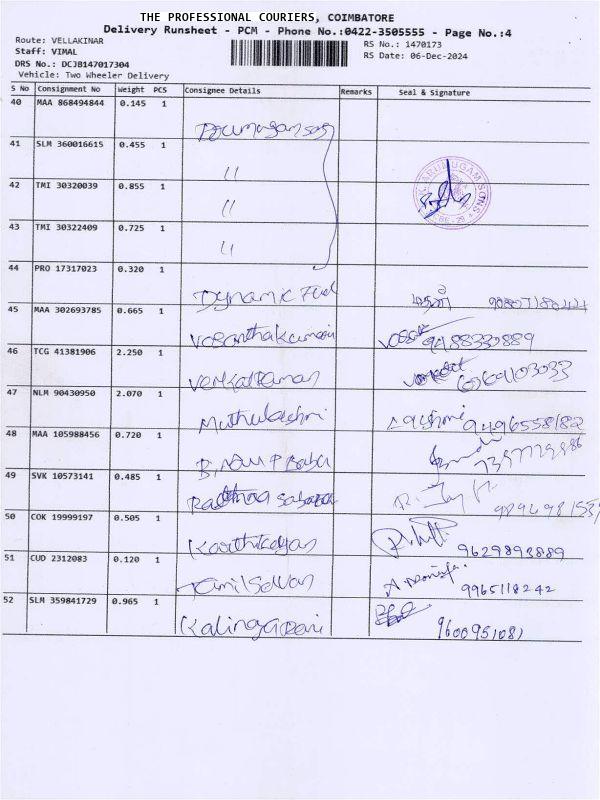 THE PROFESSIONAL COURIERS, COIMBATORE
Delivery Runsheet - PCM - Phone No.:0422-3505555 - Page No.:4
Route: VELLAKINAR
Staff: VIMAL
DRS No.: DCJB147017304
Vehicle: Two Wheeler Delivery
RS No.: 1470173
RS Date: 06-Dec-2024
S No Consignment No Weight PCS Consignee Details Remarks Seal & Signature
40 MAA 868494844 0.145 1
41 SLM 360016615 0.455 1 "
42 TMI 30320039 0.855 1 "
43 TMI 30322409 0.725 1 "
44 PRO 17317023 0.320 1 Dynamic Fuel
45 MAA 302693785 0.665 1 Vasanthakumari 9488330889
46 TCG 41381906 2.250 1 Venkatraman
47 NLM 90430950 2.070 1 Muthulakshmi Lakshmi 9496558182
48 MAA 105988456 0.720 1
49 SVK 10573141 0.485 1
50 COK 19999197 0.505 1 Karthikeyan 9629893889
51 CUD 2312083 0.120 1 Tamilselvan 9965118242
52 SLM 359841729 0.965 1 Kalingarani 9600951081